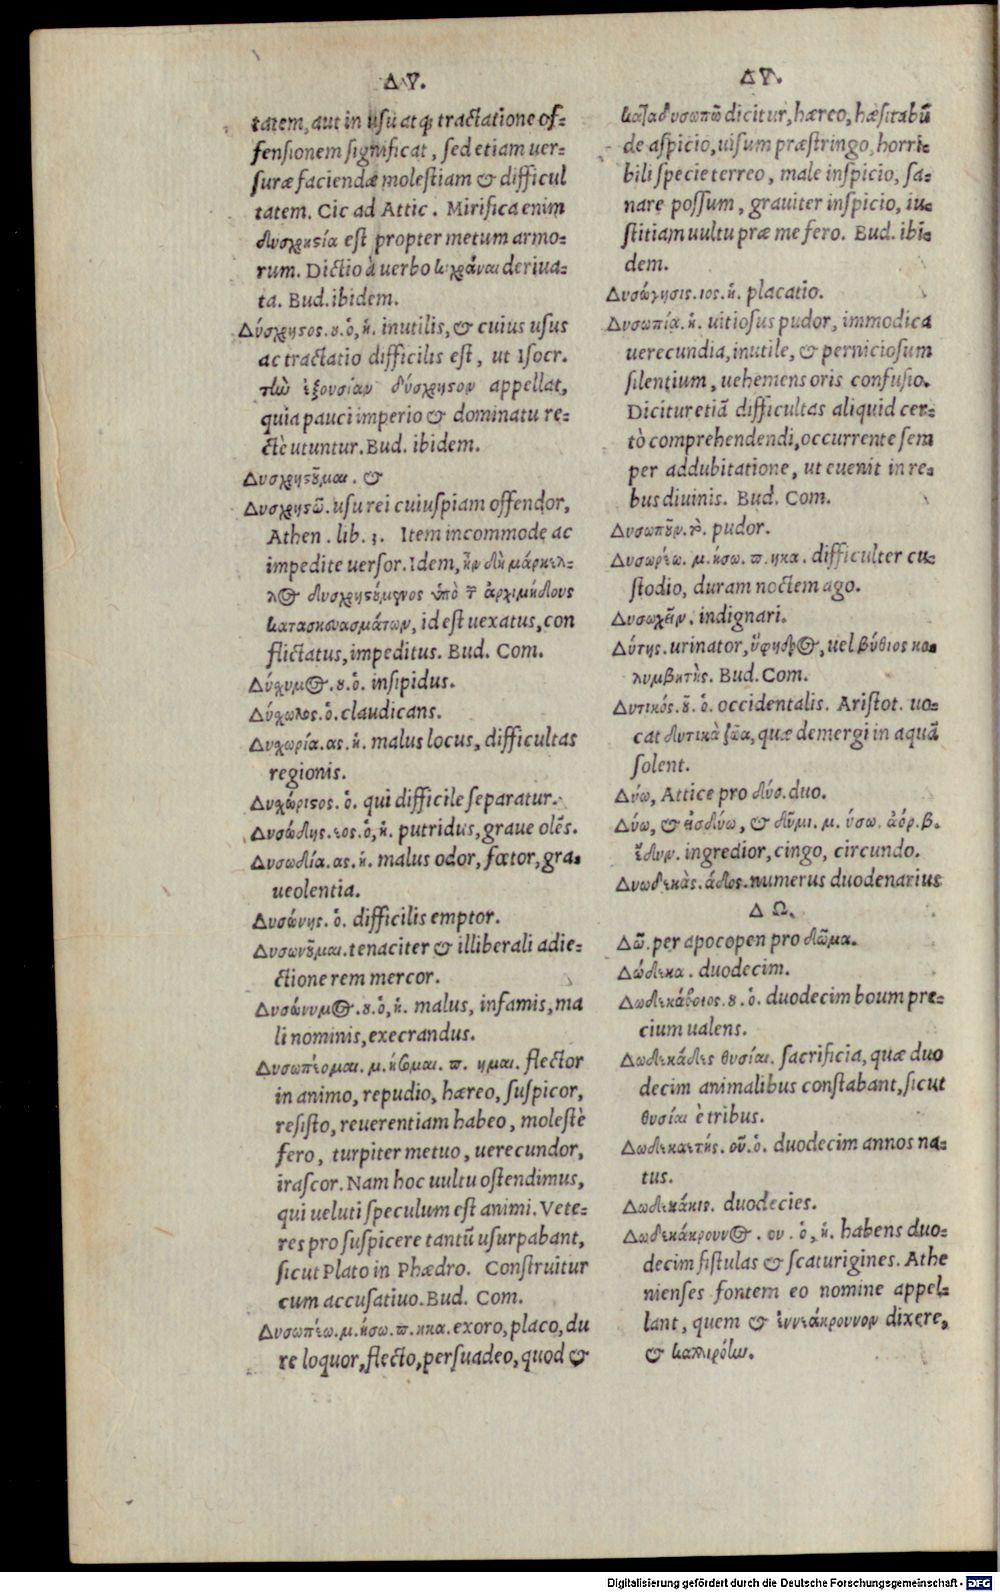 Δ Υ.
tatem, aut in usu atq; tractatione of=
fensionem significat, sed etiam uer=
suræ faciendæ molestiam & difficul
tatem. Cic ad Attic. Mirifica enim
δυσχρηστία est propter metum armo=
rum. Dictio à uerbo κιχράναι deriua=
ta. Bud. ibidem.
Δύσχρηστος.ου.ὁ,ἡ. inutilis, & cuius usus
ac tractatio difficilis est, ut Isocr.
τὴν ἐξουσίαν δύσχρηστον appellat,
quia pauci imperio & dominatu re=
ctè utuntur. Bud. ibidem.
Δυσχρηστοῦμαι. &
Δυσχρηστῶ. usu rei cuiuspiam offendor,
Athen. lib. 3. Item incommode ac
impedite uersor. Idem, ἦν δὴ μάρκελ=
λος δυσχρηστούμενος ὑπὸ τῶν ἀρχιμήδους
κατασκευασμάτων, id est uexatus, con
flictatus, impeditus. Bud. Com.
Δύχυμος.ου.ὁ. insipidus.
Δύχωλος.ὁ. claudicans.
Δυχωρία.ας.ἡ. malus locus, difficultas
regionis.
Δυχώριστος.ὁ. qui difficile separatur.
Δυσώδης.εος.ὁ,ἡ. putridus, graue olēs.
Δυσωδία.ας.ἡ. malus odor, fœtor, gra=
ueolentia.
Δυσώνης.ὁ. difficilis emptor.
Δυσωνοῦμαι. tenaciter & illiberali adie=
ctione rem mercor.
Δυσώνυμος.ου.ὁ,ἡ. malus, infamis, ma
li nominis, execrandus.
Δυσωπέομαι.μ.ήσομαι.π.ημαι. flector
in animo, repudio, hæreo, suspicor,
resisto, reuerentiam habeo, molestè
fero, turpiter metuo, uerecundor,
irascor. Nam hoc uultu ostendimus,
qui ueluti speculum est animi. Vete=
res pro suspicere tantū usurpabant,
sicut Plato in Phædro. Construitur
cum accusatiuo. Bud. Com.
Δυσωπέω.μ.ήσω.π.ηκα. exoro, placo, du
re loquor, flecto, persuadeo, quod &
Δ Υ.
καταδυσωπῶ dicitur, hæreo, hæsitabū
de aspicio, uisum præstringo, horri=
bili specie terreo, male inspicio, sa=
nare possum, grauiter inspicio, iu=
stitiam uultu præ me fero. Bud. ibi=
dem.
Δυσώπησις.ιος.ἡ. placatio.
Δυσωπία.ἡ. uitiosus pudor, immodica
uerecundia, inutile, & perniciosum
silentium, uehemens oris confusio.
Dicitur etiā difficultas aliquid cer=
tò comprehendendi, occurrente sem
per addubitatione, ut euenit in re=
bus diuinis. Bud. Com.
Δυσωποῦν.τὸ. pudor.
Δυσωρέω.μ.ήσω.π.ηκα. difficulter cu=
stodio, duram noctem ago.
Δυσωχεῖν. indignari.
Δύτης. urinator, ὕφηδρος, uel βύθιος κο=
λυμβητὴς. Bud. Com.
Δυτικός.οῦ.ὁ. occidentalis. Aristot. uo=
cat δυτικὰ ζῶα, quæ demergi in aquā
solent.
Δύω, Attice pro δύο. duo.
Δύω, & εἰσδύω, & δῦμι.μ.ύσω.ἀόρ.β.
ἔδυν. ingredior, cingo, circundo.
Δυωδεκὰς.άδος. numerus duodenarius
Δ Ω.
Δῶ. per apocopen pro δῶμα.
Δώδεκα. duodecim.
Δωδεκάβοιος.ου.ὁ. duodecim boum pre=
cium ualens.
Δωδεκάδες θυσίαι. sacrificia, quæ duo
decim animalibus constabant, sicut
θυσίαι è tribus.
Δωδεκαετής.οῦ.ὁ. duodecim annos na=
tus.
Δωδεκάκις. duodecies.
Δωδεκάκρουνος.ου.ὁ,ἡ. habens duo=
decim fistulas & scaturigines. Athe
nienses fontem eo nomine appel=
lant, quem & ἐννεάκρουνον dixere,
& καλλιρόην.
Digitalisierung gefördert durch die Deutsche Forschungsgemeinschaft - DFG